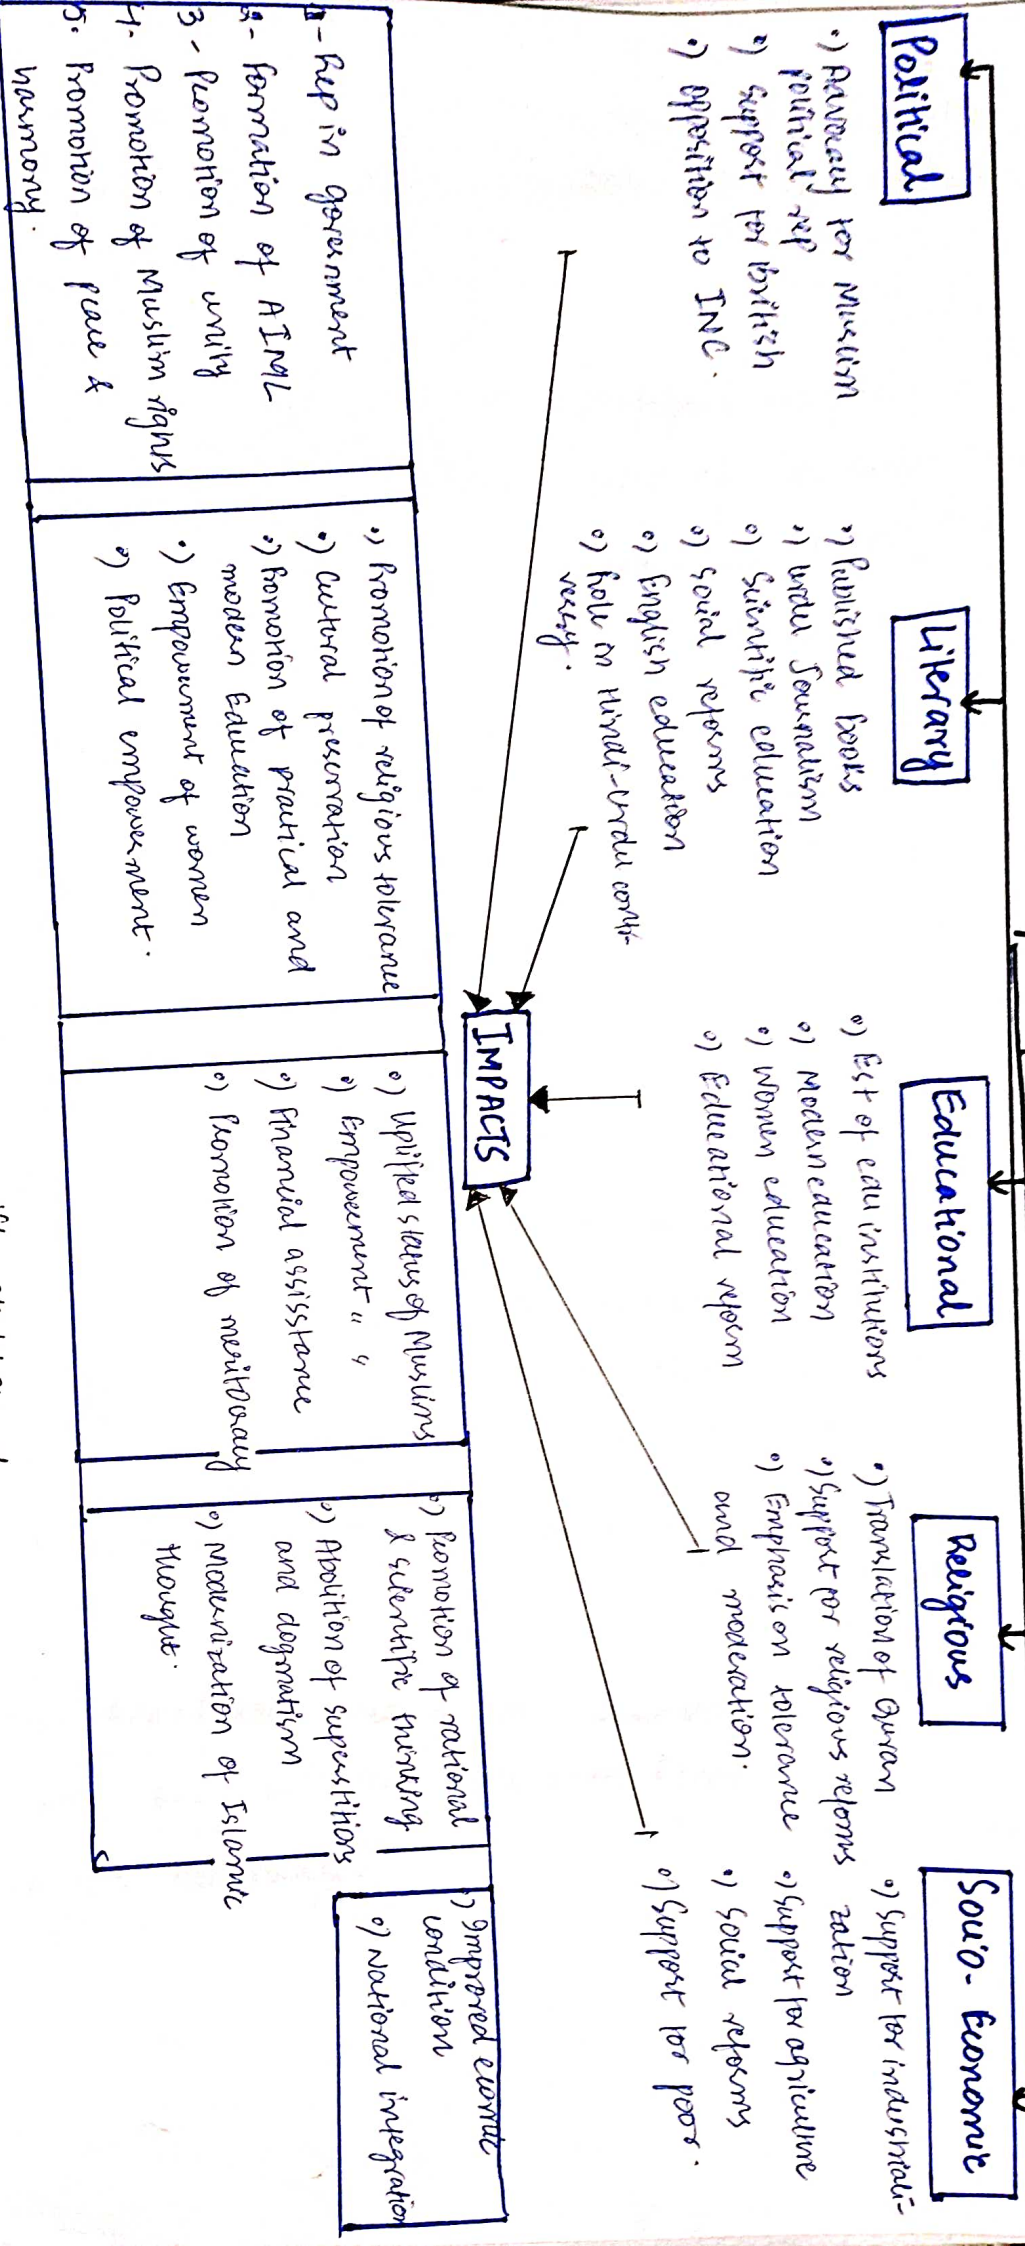 Political
•) Advocacy for Muslim
political rep
•) Support for British
•) Opposition to INC.
Literary
•) Published books
•) Urdu Journalism
•) Scientific education
•) Social reforms
•) English education
•) Role in Hindi-Urdu contr-
versy.
Educational
•) Est of edu institutions
•) Modern education
•) Women education
•) Educational reform
Religious
•) Translation of Quran
•) Support for religious reforms
•) Emphasis on tolerance
and moderation.
Socio-Economic
•) Support for industriali-
zation
•) Support for agriculture
•) Social reforms
•) Support for poor.
IMPACTS
1- Rep in government
2- Formation of AIML
3- Promotion of unity
4. Promotion of Muslim rights
5. Promotion of peace &
harmony.
•) Promotion of religious tolerance
•) Cultural preservation
•) Promotion of practical and
modern Education
•) Empowerment of women
•) Political empowerment.
•) Uplifted status of Muslims
•) Empowerment " "
•) Financial assistance
•) Promotion of meritocracy
•) Promotion of rational
& scientific thinking
•) Abolition of superstitions
and dogmatism
•) Modernization of Islamic
thought.
•) Improved ecomic
condition
•) National integration